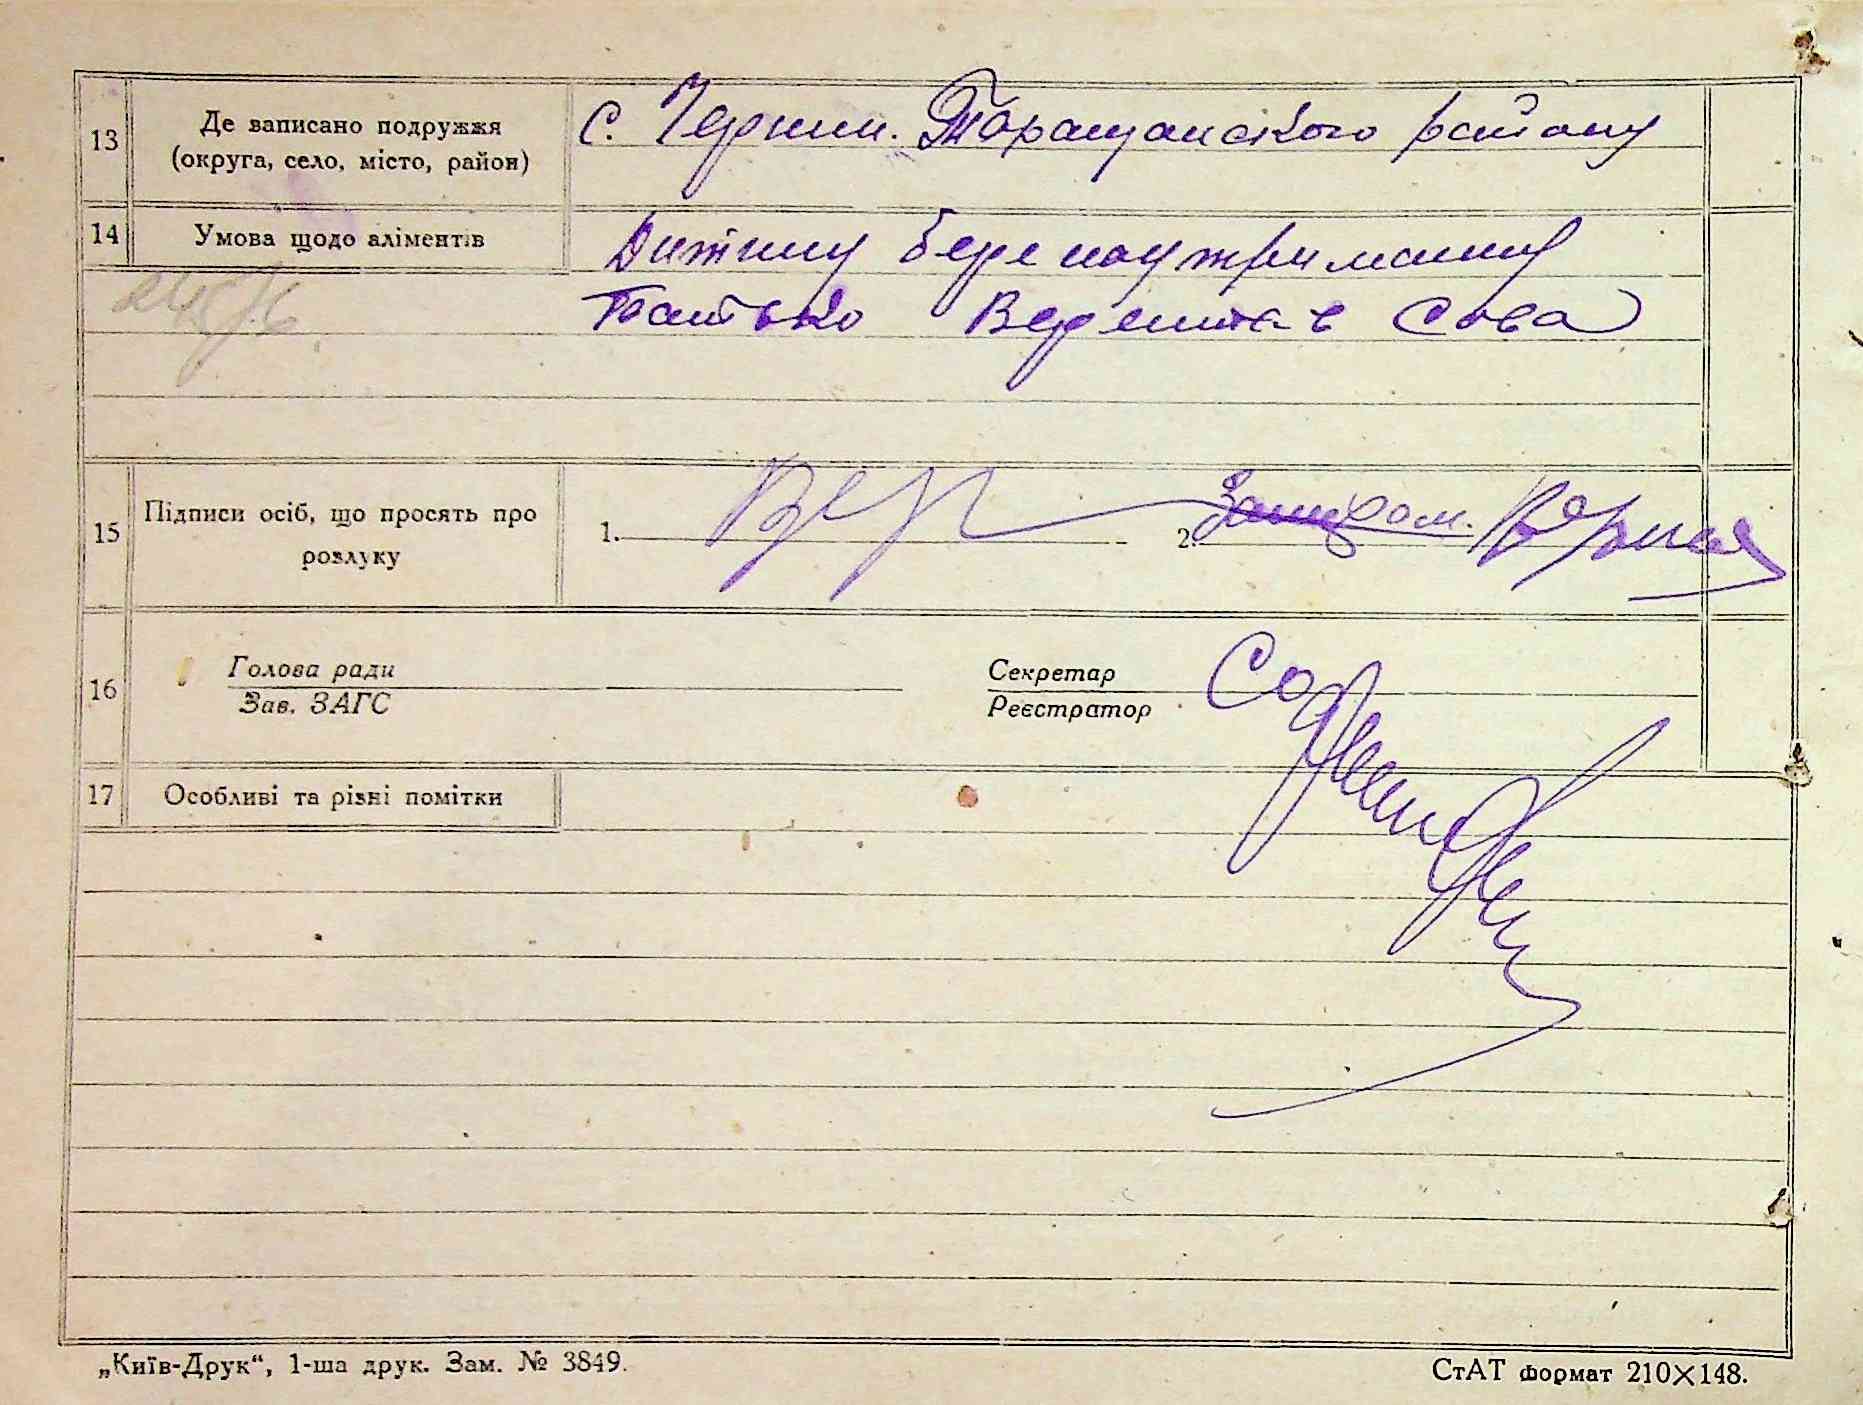 13
Де записано подружжя
(округа, село, місто, район)
с. Чернин. Таращанського району
14
Умова щодо аліментів
Дитину бере на утримання
Батько в Сова
15
Підписи осіб, що просять про
розлуку
1.
2.
16
Голова ради
Зав. ЗАГС
Секретар
Реєстратор
17
Особливі та різні помітки
„Київ-Друк“, 1-ша друк. Зам. № 3849.
СтАТ формат 210×148.